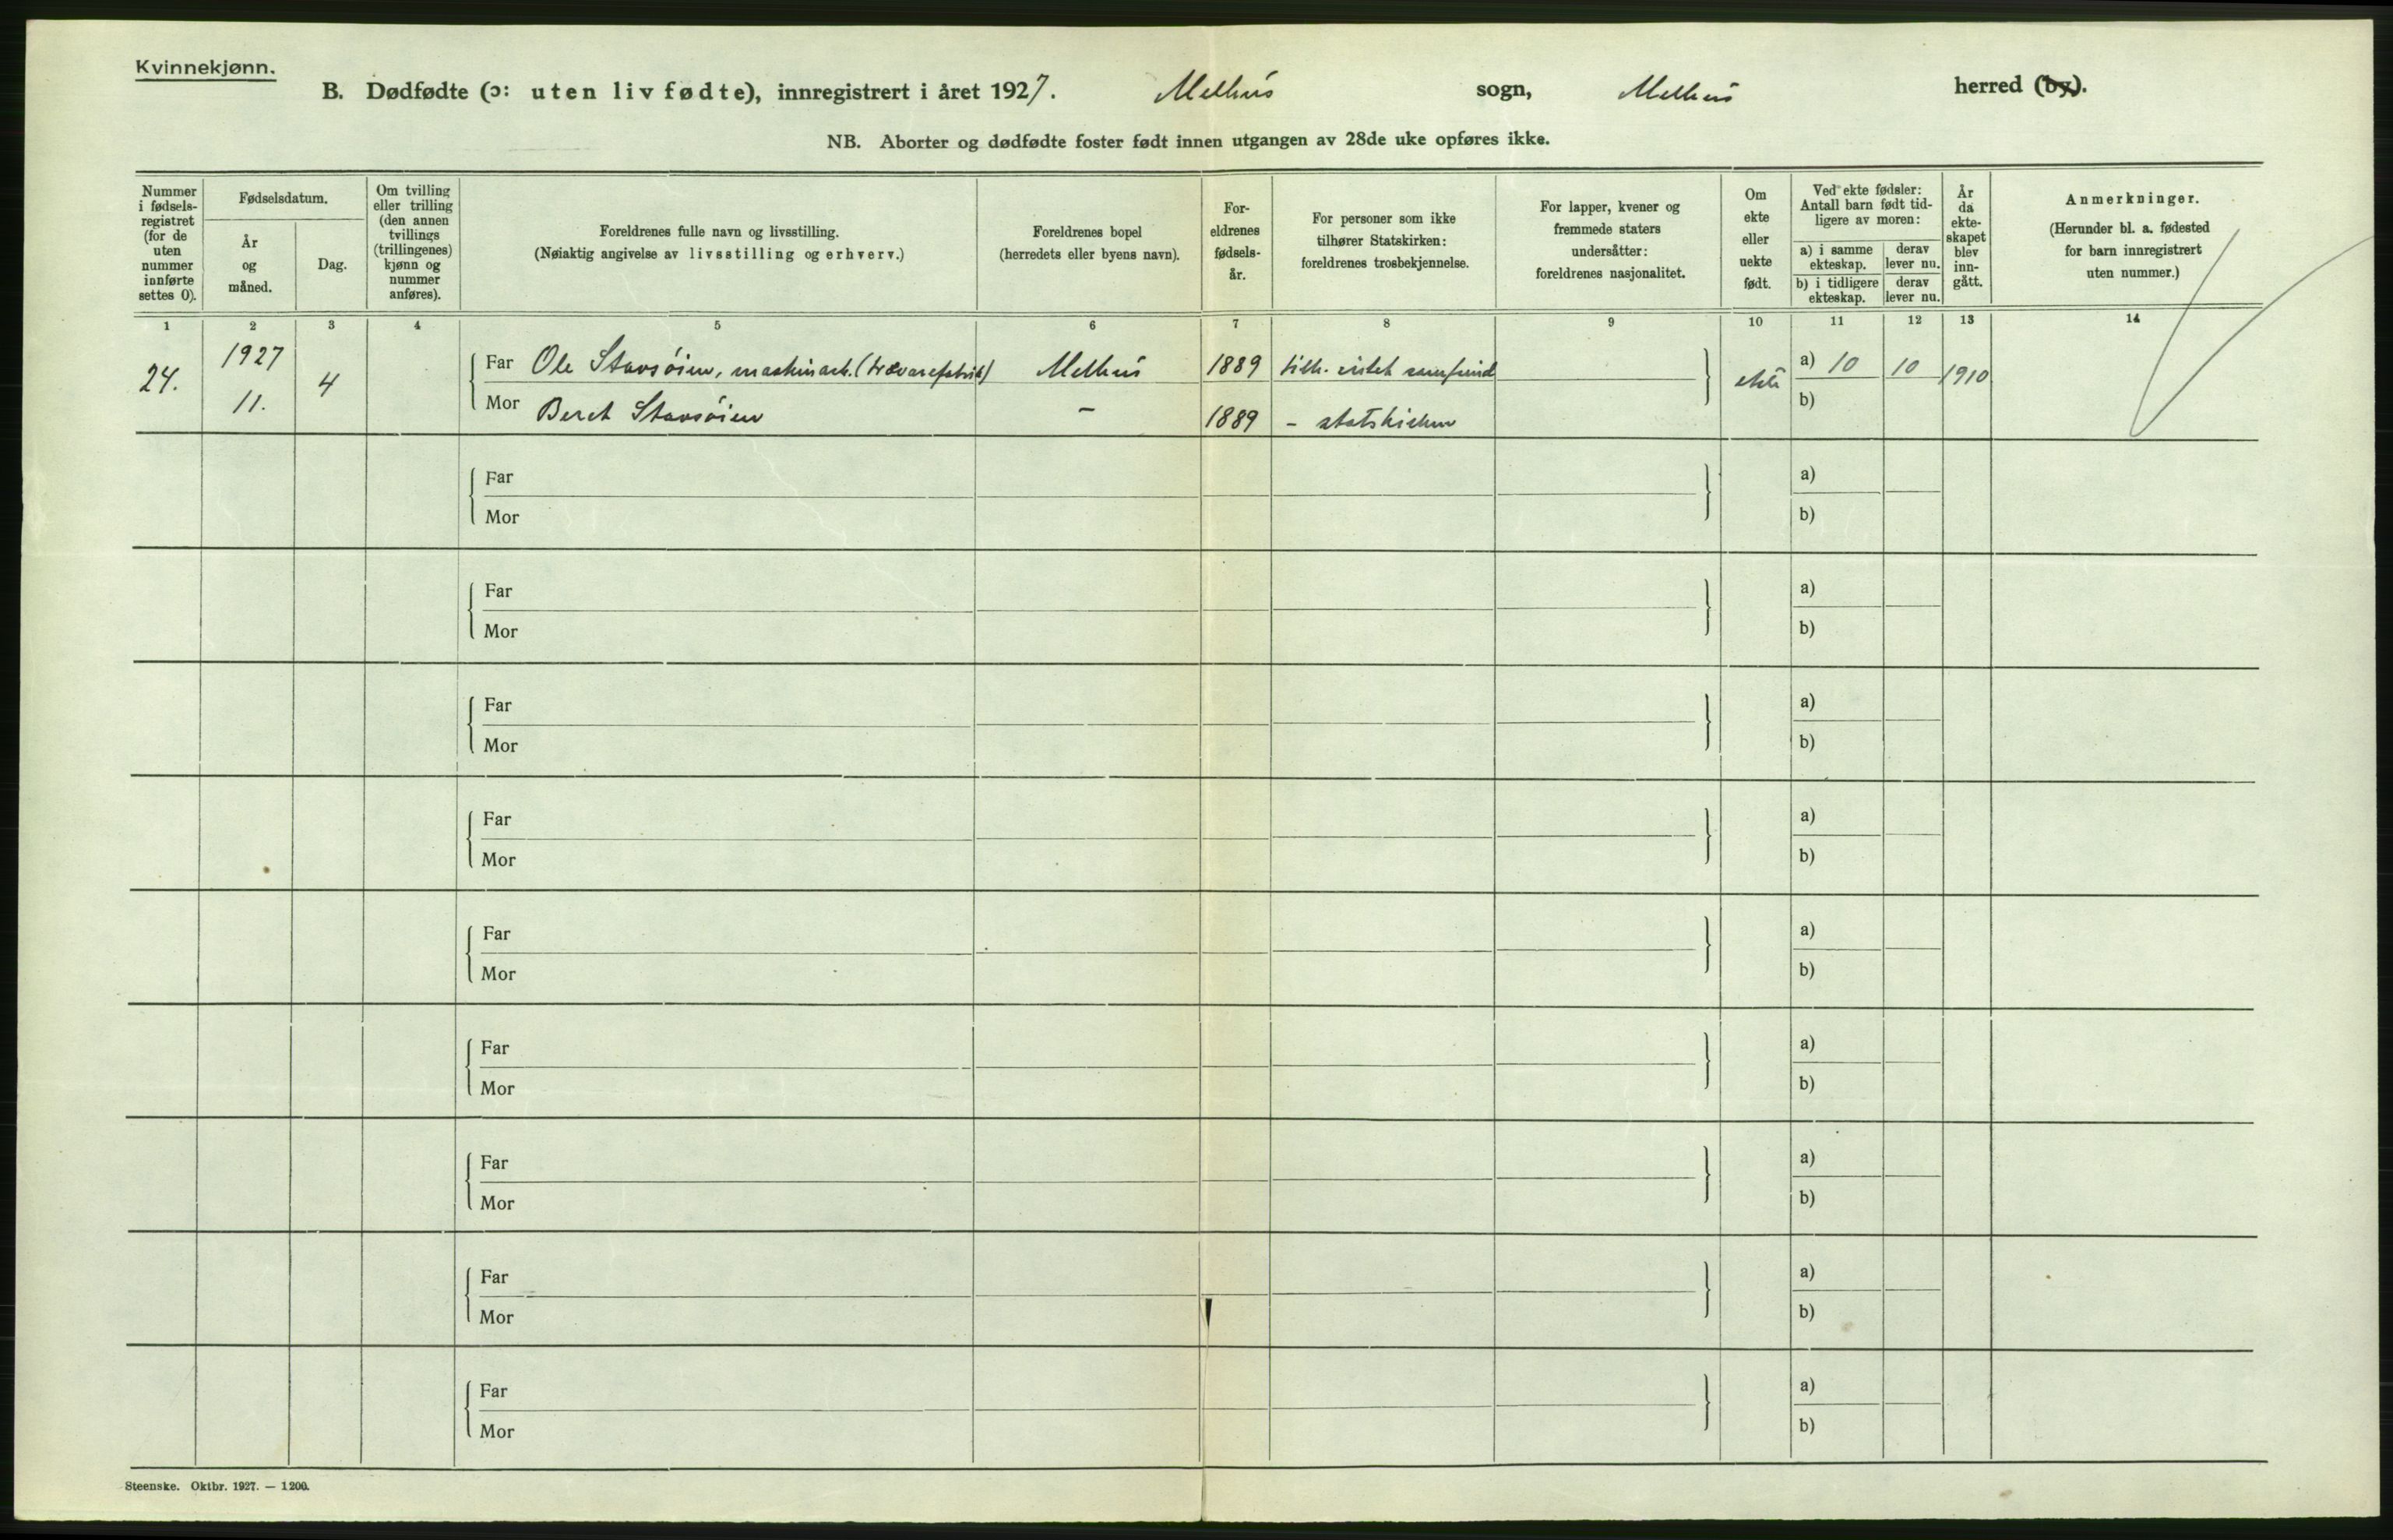 Kvinnekjønn.
B. Dødfødte (ɔ: uten liv fødte), innregistrert i året 1927. Melhus sogn, Melhus herred (by).
NB. Aborter og dødfødte foster født innen utgangen av 28de uke opføres ikke.
Nummer i fødsels-registret (for de uten nummer innførte settes 0).
Fødselsdatum.
År og måned.
Dag.
Om tvilling eller trilling (den annen tvillings (trillingenes) kjønn og nummer anføres).
Foreldrenes fulle navn og livsstilling.
(Nøiaktig angivelse av livsstilling og erhverv.)
Foreldrenes bopel
(herredets eller byens navn).
For-eldrenes fødsels-år.
For personer som ikke tilhører Statskirken: foreldrenes trosbekjennelse.
For lapper, kvener og fremmede staters undersåtter: foreldrenes nasjonalitet.
Om ekte eller uekte født.
Ved ekte fødsler: Antall barn født tid-ligere av moren:
a) i samme ekteskap.
derav lever nu.
b) i tidligere ekteskap.
derav lever nu.
År da ekte-skapet blev inn-gått.
Anmerkninger.
(Herunder bl. a. fødested for barn innregistrert uten nummer.)
1 2 3 4 5 6 7 8 9 10 11 12 13 14
24. 1927 11. 4
Far Ole Stavsøien, maskinarb. (trævarefabrik) Melhus 1889 ekte a) 10 10 1910
Mor Beret Stavsøien - 1889 - statskirken b)
Far a)
Mor b)
Far a)
Mor b)
Far a)
Mor b)
Far a)
Mor b)
Far a)
Mor b)
Far a)
Mor b)
Far a)
Mor b)
Far a)
Mor b)
Far a)
Mor b)
Steenske. Oktbr. 1927. — 1200.